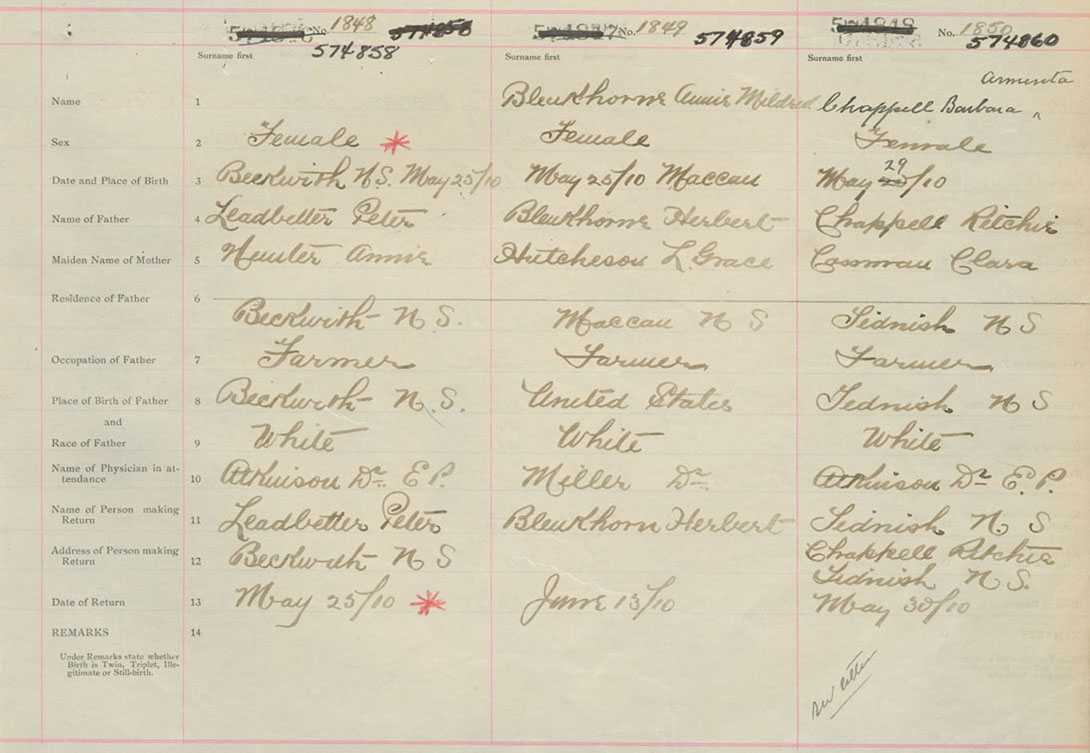 No. 1848 No. 1849 No. 1850
574858 574859 574860
Surname first Surname first Surname first
Armenta
Name 1 Bleukhorne Annie Mildred Chappell Barbara
Sex 2 Female * Female Female
Date and Place of Birth 3 Beckwith N.S. May 25/10 May 25/10 Maccan May 29/10
Name of Father 4 Leadbetter Peter Bleukhorne Herbert Chappell Ritchie
Maiden Name of Mother 5 Hunter Annie Hutcheson L. Grace Cossman Clara
Residence of Father 6
Beckwith N S. Maccan N S Tidnish N S
Occupation of Father 7 Farmer Farmer Farmer
Place of Birth of Father 8 Beckwith N.S. United States Tidnish N S
and
Race of Father 9 White White White
Name of Physician in at-
tendance 10 Atkinson Dr. E P. Miller Dr. Atkinson Dr E. P.
Name of Person making
Return 11 Leadbetter Peter Bleukhorn Herbert Tidnish N S
Address of Person making
Return 12 Beckwith N S Chappell Ritchie
Tidnish N S.
Date of Return 13 May 25/10 * June 13/10 May 30/10
REMARKS 14
Under Remarks state whether
Birth is Twin, Triplet, Ille-
gitimate or Still-birth.
letter